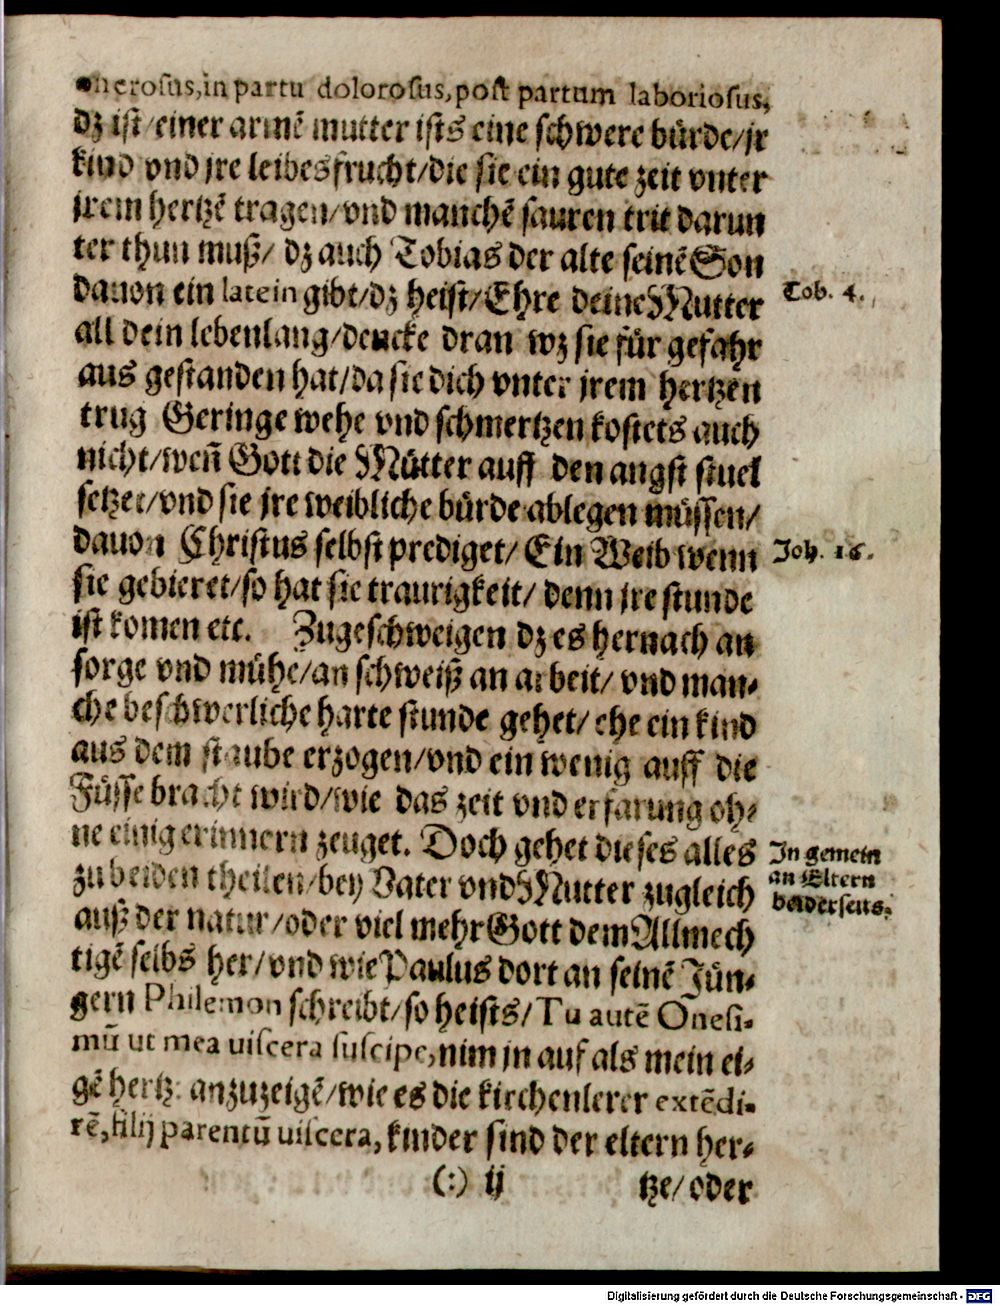 onerosus, in partu dolorosus, post partum laboriosus,
dz ist / einer armē mutter ists eine schwere bürde / jr
kind vnd jre leibes frucht / die sie ein gute zeit vnter
jrem hertzē tragen / vnd manchē sauren trit darun
ter thun muß / dz auch Tobias der alte seinē Son
dauon ein latein gibt / dz heist / Ehre deine Mutter
Tob. 4.
all dein lebenlang / dencke dran wz sie für gefahr
aus gestanden hat / da sie dich vnter jrem hertzen
trug Geringe wehe vnd schmertzen kostets auch
nicht / weñ Gott die Mütter auff den angst stuel
setzet / vnd sie jre weibliche bürde ablegen müssen /
dauon Christus selbst prediget / Ein Weib wenn
Joh. 16.
sie gebieret / so hat sie traurigkeit / denn jre stunde
ist komen etc. Zugeschweigen dz es hernach an
sorge vnd mühe / an schweiß an arbeit / vnd man-
che beschwerliche harte stunde gehet / ehe ein kind
aus dem staube erzogen / vnd ein wenig auff die
Füsse bracht wird / wie das zeit vnd erfarung oh-
ne einig erinnern zeuget. Doch gehet dieses alles
In gemein
an Eltern
beiderseits.
zu beiden theilen / bey Vater vnd Mutter zugleich
auß der natur / oder viel mehr Gott dem Allmech
tigē selbs her / vnd wie Paulus dort an seinē Jün-
gern Philemon schreibt / so heists / Tu autē Onesi-
mū ut mea uiscera suscipe, nim jn auf als mein ei-
gē hertz: anzuzeigē / wie es die kirchenlerer extēdi-
rē, filij parentū uiscera, kinder sind der eltern her-
(:) ij
tze / oder
Digitalisierung gefördert durch die Deutsche Forschungsgemeinschaft - DFG